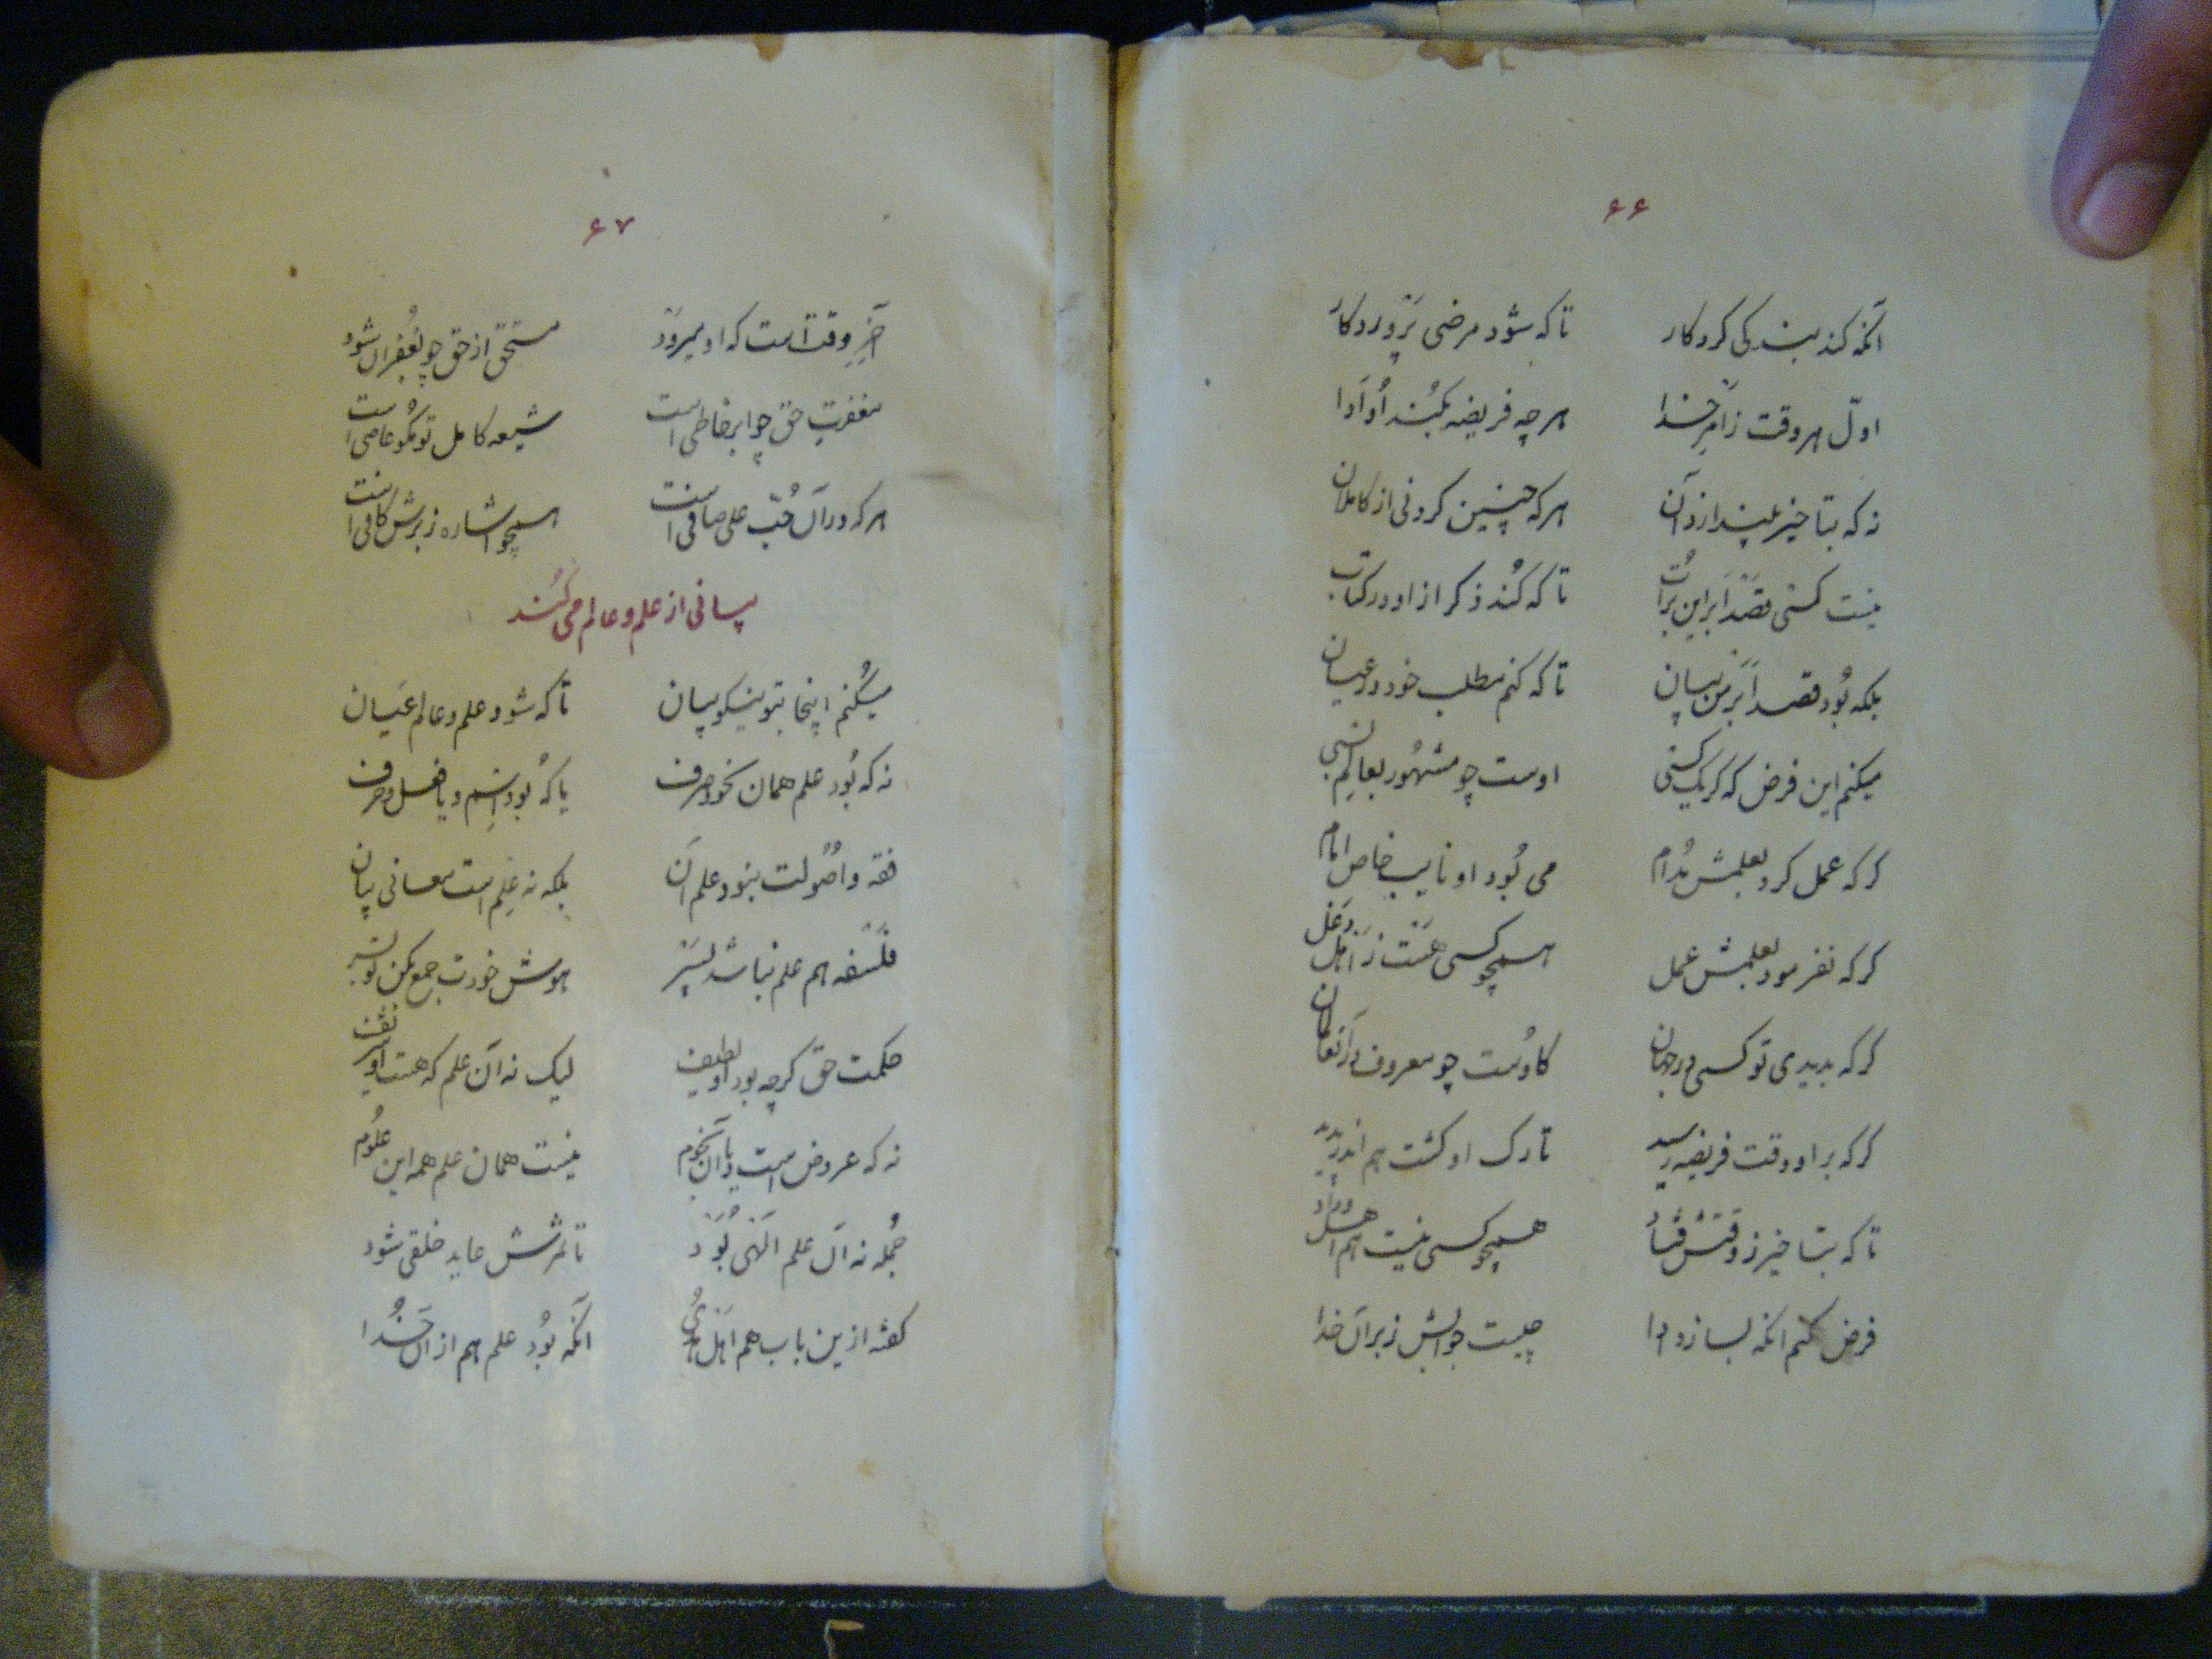 ۶۶
آنکه کند بندگی کردگار تا که شود مرضی پروردگار
اول هر وقت ز امر خدا هر چه فریضه بکند او ادا
نه که بتاخیر بیندازد آن هر که چنین کرد نی از کاملان
نیست کسی قصد بر این تا که کند ذکر از او در کتاب
بلکه بود قصد از بیان تا که کنم مطلب خود در عیان
میکنم این فرض که گر یک کسی اوست چو مشهور بعالم بسی
گر که عمل کرد بعلمش مدام می بود او نایب خاص امام
گر که نفرمود بعلمش عمل همچو کسی هست ز اهل دغل
گر که بدیدی تو کسی در جهان کاوست چو معروف در
گر که بر او وقت فریضه رسید تارک او گشت هم
تا که بتاخیر ز وقتش فتاد همچو کسی نیست هم اهل وداد
فرض کنم آنکه بسازد ادا چیست جوابش ز برای خدا
۶۷
آخر وقت است که او میرود مستحق از حق چو بغفران شود
مغفرت حق چو بر خاطی است شیعه کامل تو مگو عاصی است
هر که در آن حب علی صافی است همچو اشاره ز برش کافی است
بیانی از علم و عالم می کند
میکنم اینجا بتو نیکو بیان تا که شود علم و عالم عیان
نه که بود علم همان نحو و صرف یا که بود اسم و یا فعل و حرف
فقه و اصولت نبود علم آن بلکه نه علم است معانی بیان
فلسفه هم علم نباشد پسر هوش خودت جمع بکن
حکمت حق گرچه بود او لطیف لیک نه آن علم که هست او شریف
نه که عروض است و یا آن نجوم نیست همان علم همه این علوم
جمله نه آن علم الهی بود تا ثمرش عاید خلقی شود
گفته ازین باب هم اهل هدی آنکه بود علم هم از آن خدا